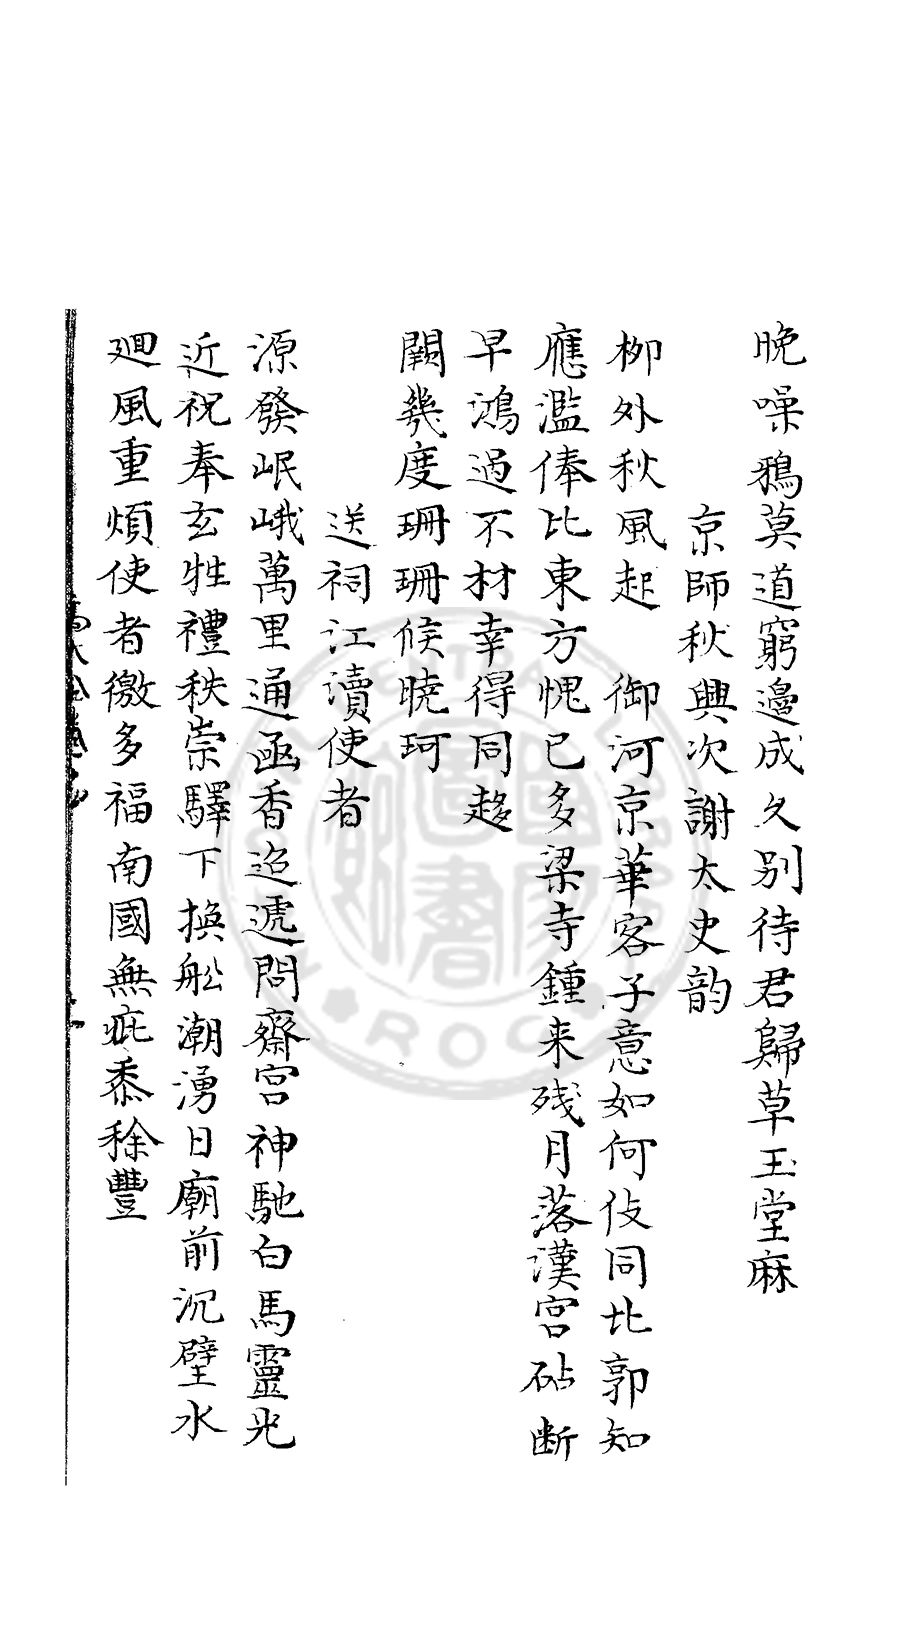 晩噪鴉莫道窮邉成久别待君歸草玉堂麻
京師秋興次謝太史韵
柳外秋風起 御河京華客子意如何伎同北郭知
應濫俸比東方愧已多梁寺鍾来残月落漢宮砧斷
早鴻過不材幸得同趍
闕幾度珊珊候曉珂
送祠江瀆使者
源發岷峨萬里通函香迢遞問齋宮神馳白馬靈光
近祝奉玄牲禮秩崇驛下換舩潮湧日廟前沉璧水
廻風重煩使者徼多福南國無疵黍稌豐